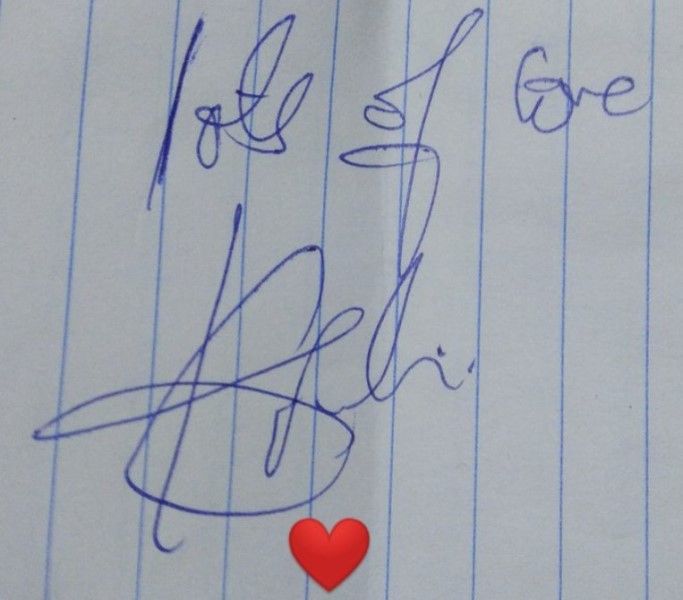 lots of love